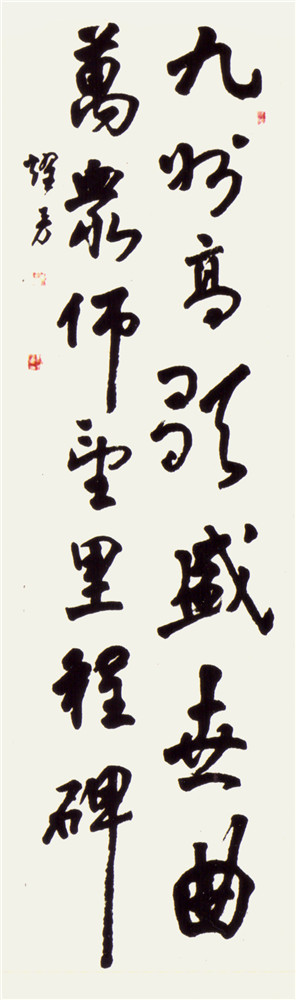 九州高歌盛世曲
萬衆仰望里程碑
耀芳